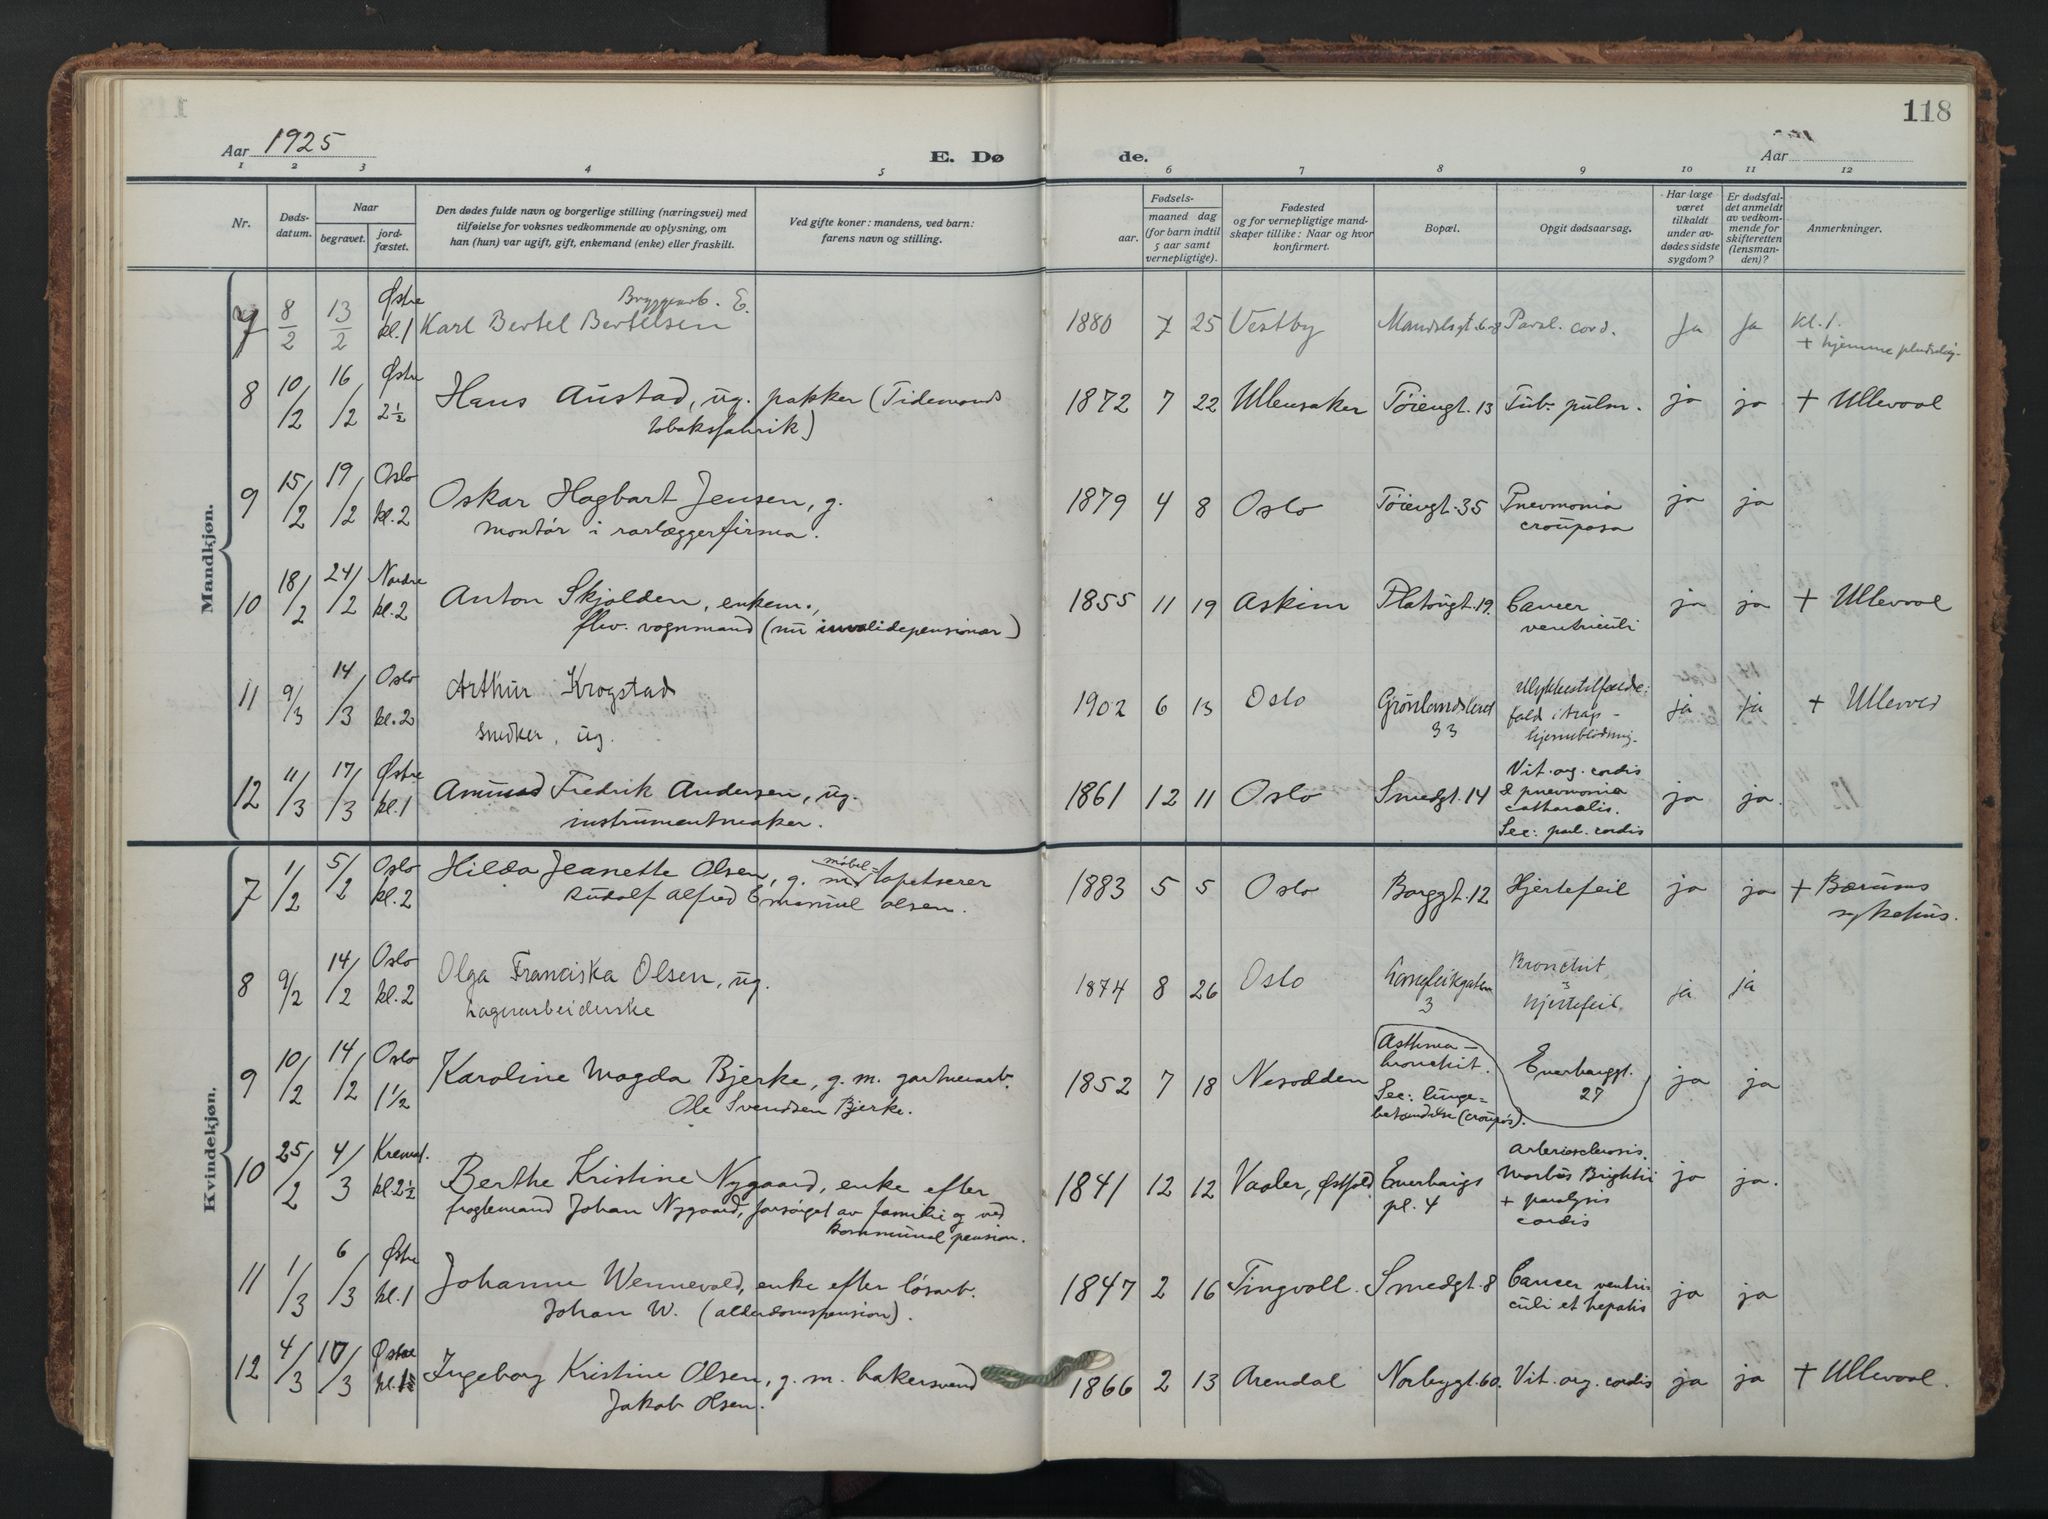 118
Aar 1925
E. Dø
de.
Aar
1 2 3 4 5 6 7 8 9 10 11 12
Nr.
Døds-
datum.
Naar
begravet.
jord-
fæstet.
Den dødes fulde navn og borgerlige stilling (næringsvei) med
tilføielse for voksnes vedkommende av oplysning, om
han (hun) var ugift, gift, enkemand (enke) eller fraskilt.
Ved gifte koner: mandens, ved barn:
farens navn og stilling.
Fødsels-
aar.
maaned dag
(for barn indtil
5 aar samt
vernepligtige).
Fødested
og for vernepligtige mand-
skaper tillike: Naar og hvor
konfirmert.
Bopæl.
Opgit dødsaarsag.
Har læge
været
tilkaldt
under av-
dødes sidste
sygdom?
Er dødsfal-
det anmeldt
av vedkom-
mende for
skifteretten
(lensman-
den)?
Anmerkninger.
Mandkjøn.
7 8/2 13/2 Østre kl. 1
Bryggearb. E.
Karl Bertel Bertelsen
1880 7 25 Vestby Mandalsgt. Paral. cord. Ja Ja kl. 1.
+ hjemme pludselig
8 10/2 16/2 Østre 2½
Hans Austad, ug. pakker (Tidemands
tobaksfabrik)
1872 7 22 Ullensaker Tøiengt. 13 Tub. pulm. ja ja + Ullevaal
9 15/2 19/2 Oslo kl. 2
Oskar Hagbart Jensen, g.
montør i rørlæggerfirma.
1879 4 8 Oslo Tøiengt. 35 Pnevmonia
crouposa
ja ja
10 18/2 24/2 Nordre kl. 2
Anton Skjolden, enkem.,
fhv. vognmand (nu invalidepensionær)
1855 11 19 Askim Platougt. 19. Cancer
ventriculi
ja ja + Ullevaal
11 9/3 14/3 Oslo kl. 2
Arthur Krogstad
snedker, ug.
1902 6 13 Oslo Grønlandsleret
33
Ulykkestilfælde:
fald i trap -
hjerneblødning.
ja ja + Ullevål
12 11/3 17/3 Østre kl. 1
Amund Fredrik Andersen, ug.
instrumentmaker.
1861 12 11 Oslo Smedgt. 14 Vit. org. cordis
& pneumonia
catharalis.
Sec: paral. cordis
ja ja.
Kvindekjøn.
7 1/2 5/2 Oslo kl. 2
Hilda Jeanette Olsen, g. m. møbel-tapetserer
Rudolf Alfred Emanuel Olsen.
1883 5 5 Oslo Borggt. 12 Hjertefeil ja ja + Bærums
sykehus.
8 9/2 14/2 Oslo kl. 2
Olga Franciska Olsen, ug.
Lagerarbeiderske
1874 8 26 Oslo Langleikgaten
3
Bronchit
&
hjertefeil.
ja ja
9 10/2 14/2 Oslo 1½
Karoline Magda Bjerke, g. m. gartnerarb.
Ole Svendsen Bjerke.
1852 7 18 Nesodden
Asthma -
bronchit.
Sec: lunge-
betændelse (croupøs).
Enerhauggt.
27
ja ja
10 25/2 4/3 Kremat. kl. 2½
Berthe Kristine Nygaard, enke efter
frogtemand Johan Nygaard, forsørget av familie og ved
kommunal pension.
1841 12 12 Vaaler, Østfold Enerhaugs
pl. 4
Arteriosclerosis.
Morbus Brightii
+ paralysis
cordis
ja ja.
11 1/3 6/3 Østre kl. 1
Johanne Wennevold, enke efter løsarb.
Johan W. (alderdomspension).
1847 2 16 Tingvoll. Smedgt. 8 Cancer ventri
culi et hepatis
ja ja
12 4/3 10/3 Østre
Ingeborg Kristine Olsen, g. m. bakersvend
Jakob Olsen.
1866 2 13 Arendal Norbygt. 60. Vit. org. cordis ja ja + Ullevaal.